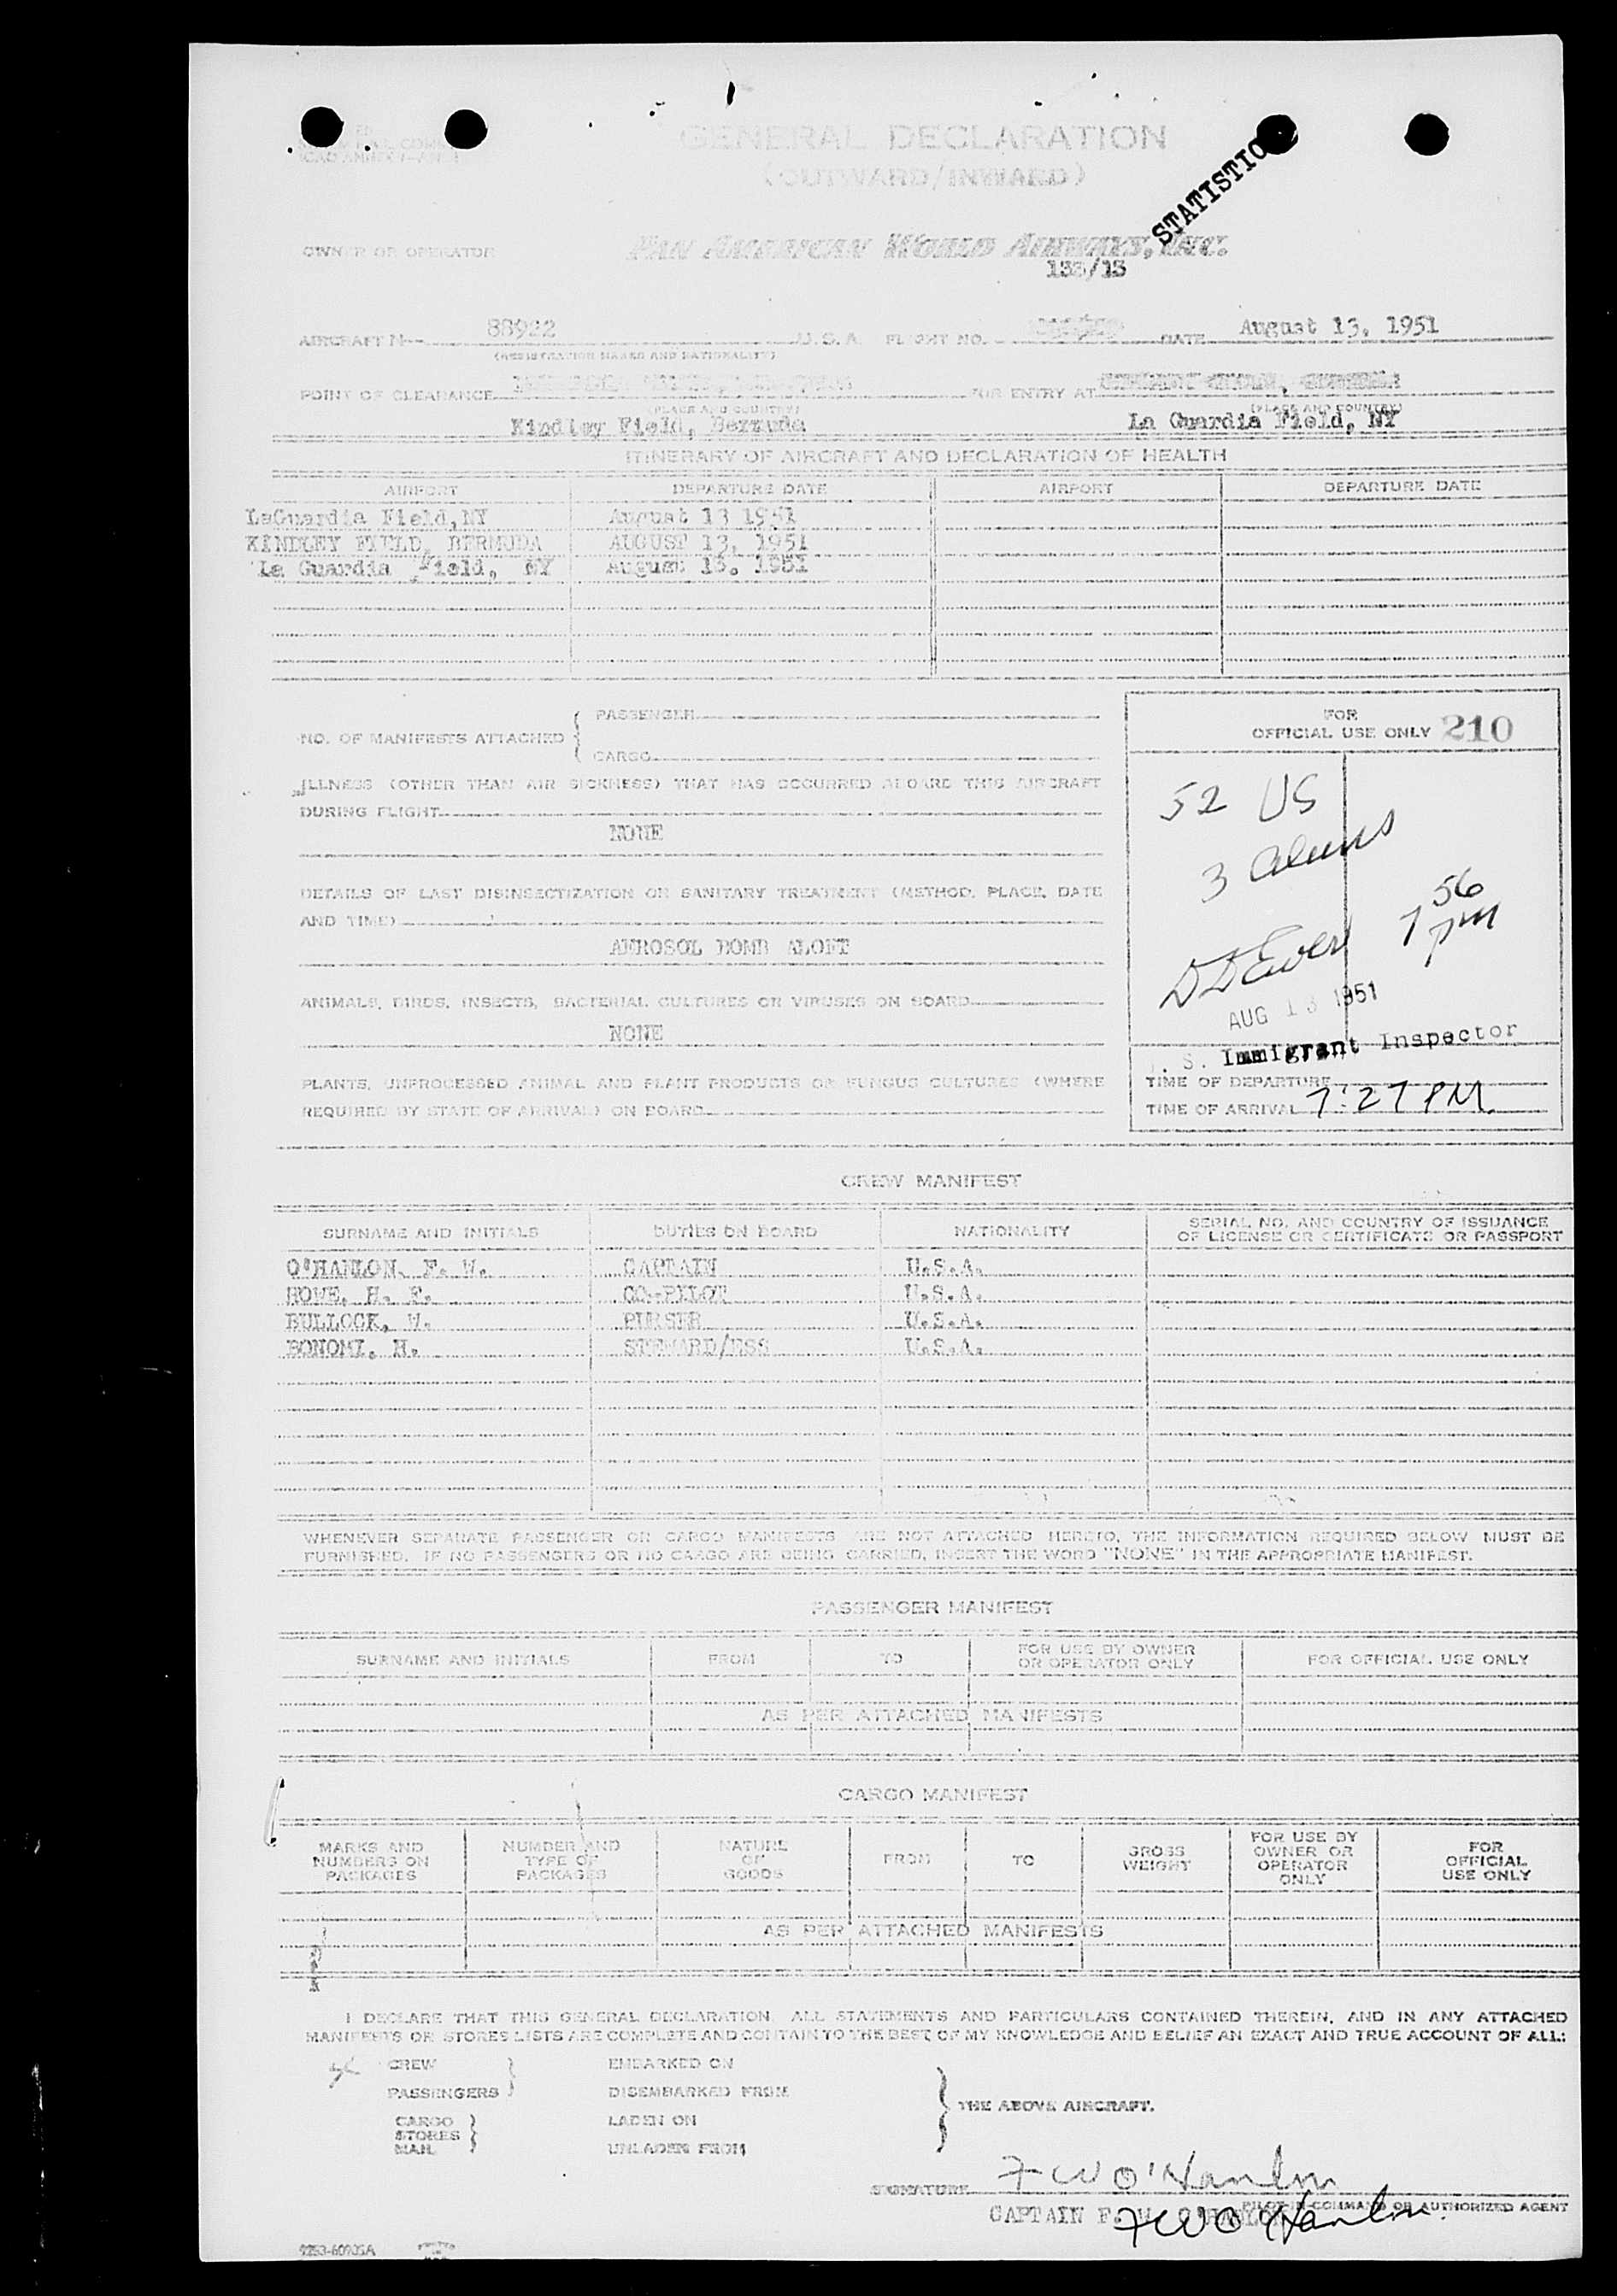 GENERAL DECLARATION
(OUTWARD/INWARD)
STATISTIC
OWNER OR OPERATOR PAN AMERICAN WORLD AIRWAYS, INC.
AIRCRAFT N— 88922 U.S.A. FLIGHT NO. DATE August 13, 1951
(REGISTRATION MARKS AND NATIONALITY)
POINT OF CLEARANCE FOR ENTRY AT
(PLACE AND COUNTRY) (PLACE AND COUNTRY)
Kindley Field, Bermuda La Guardia Field, NY
ITINERARY OF AIRCRAFT AND DECLARATION OF HEALTH
AIRPORT DEPARTURE DATE AIRPORT DEPARTURE DATE
LaGuardia Field, NY August 13 1951
KINDLEY FIELD, BERMUDA AUGUST 13, 1951
La Guardia Field, NY August 13. 1951
NO. OF MANIFESTS ATTACHED
PASSENGER
CARGO
ILLNESS (OTHER THAN AIR SICKNESS) THAT HAS OCCURRED ABOARD THIS AIRCRAFT
DURING FLIGHT
NONE
DETAILS OF LAST DISINSECTIZATION OR SANITARY TREATMENT (METHOD, PLACE, DATE
AND TIME)
AEROSOL BOMB ALOFT
ANIMALS, BIRDS, INSECTS, BACTERIAL CULTURES OR VIRUSES ON BOARD
NONE
PLANTS, UNPROCESSED ANIMAL AND PLANT PRODUCTS OR FUNGUS CULTURES (WHERE
REQUIRED BY STATE OF ARRIVAL) ON BOARD
FOR
OFFICIAL USE ONLY 210
52 US
3 aliens
7 56 pm
AUG 13 1951
S. Immigrant Inspector
TIME OF DEPARTURE
TIME OF ARRIVAL 7:27 PM.
CREW MANIFEST
SURNAME AND INITIALS DUTIES ON BOARD NATIONALITY SERIAL NO. AND COUNTRY OF ISSUANCE
OF LICENSE OR CERTIFICATE OR PASSPORT
O'HANLON, F. W. CAPTAIN U.S.A.
HOWE, H. F. CO-PILOT U.S.A.
BULLOCK, W. PURSER U.S.A.
BONOMI, H. STEWARD/ESS U.S.A.
WHENEVER SEPARATE PASSENGER OR CARGO MANIFESTS ARE NOT ATTACHED HERETO, THE INFORMATION REQUIRED BELOW MUST BE
FURNISHED. IF NO PASSENGERS OR NO CARGO ARE BEING CARRIED, INSERT THE WORD "NONE" IN THE APPROPRIATE MANIFEST.
PASSENGER MANIFEST
SURNAME AND INITIALS FROM TO FOR USE BY OWNER
OR OPERATOR ONLY FOR OFFICIAL USE ONLY
AS PER ATTACHED MANIFESTS
CARGO MANIFEST
MARKS AND
NUMBERS ON
PACKAGES
NUMBER AND
TYPE OF
PACKAGES
NATURE
OF
GOODS
FROM
TO
GROSS
WEIGHT
FOR USE BY
OWNER OR
OPERATOR
ONLY
FOR
OFFICIAL
USE ONLY
AS PER ATTACHED MANIFESTS
I DECLARE THAT THIS GENERAL DECLARATION, ALL STATEMENTS AND PARTICULARS CONTAINED THEREIN, AND IN ANY ATTACHED
MANIFESTS OR STORES LISTS ARE COMPLETE AND CONTAIN TO THE BEST OF MY KNOWLEDGE AND BELIEF AN EXACT AND TRUE ACCOUNT OF ALL:
CREW EMBARKED ON
PASSENGERS DISEMBARKED FROM
THE ABOVE AIRCRAFT.
CARGO LADEN ON
STORES
MAIL UNLADEN FROM
SIGNATURE F W O'Hanlon
PILOT IN COMMAND OR AUTHORIZED AGENT
CAPTAIN F. W. O'HANLON
F W O'Hanlon